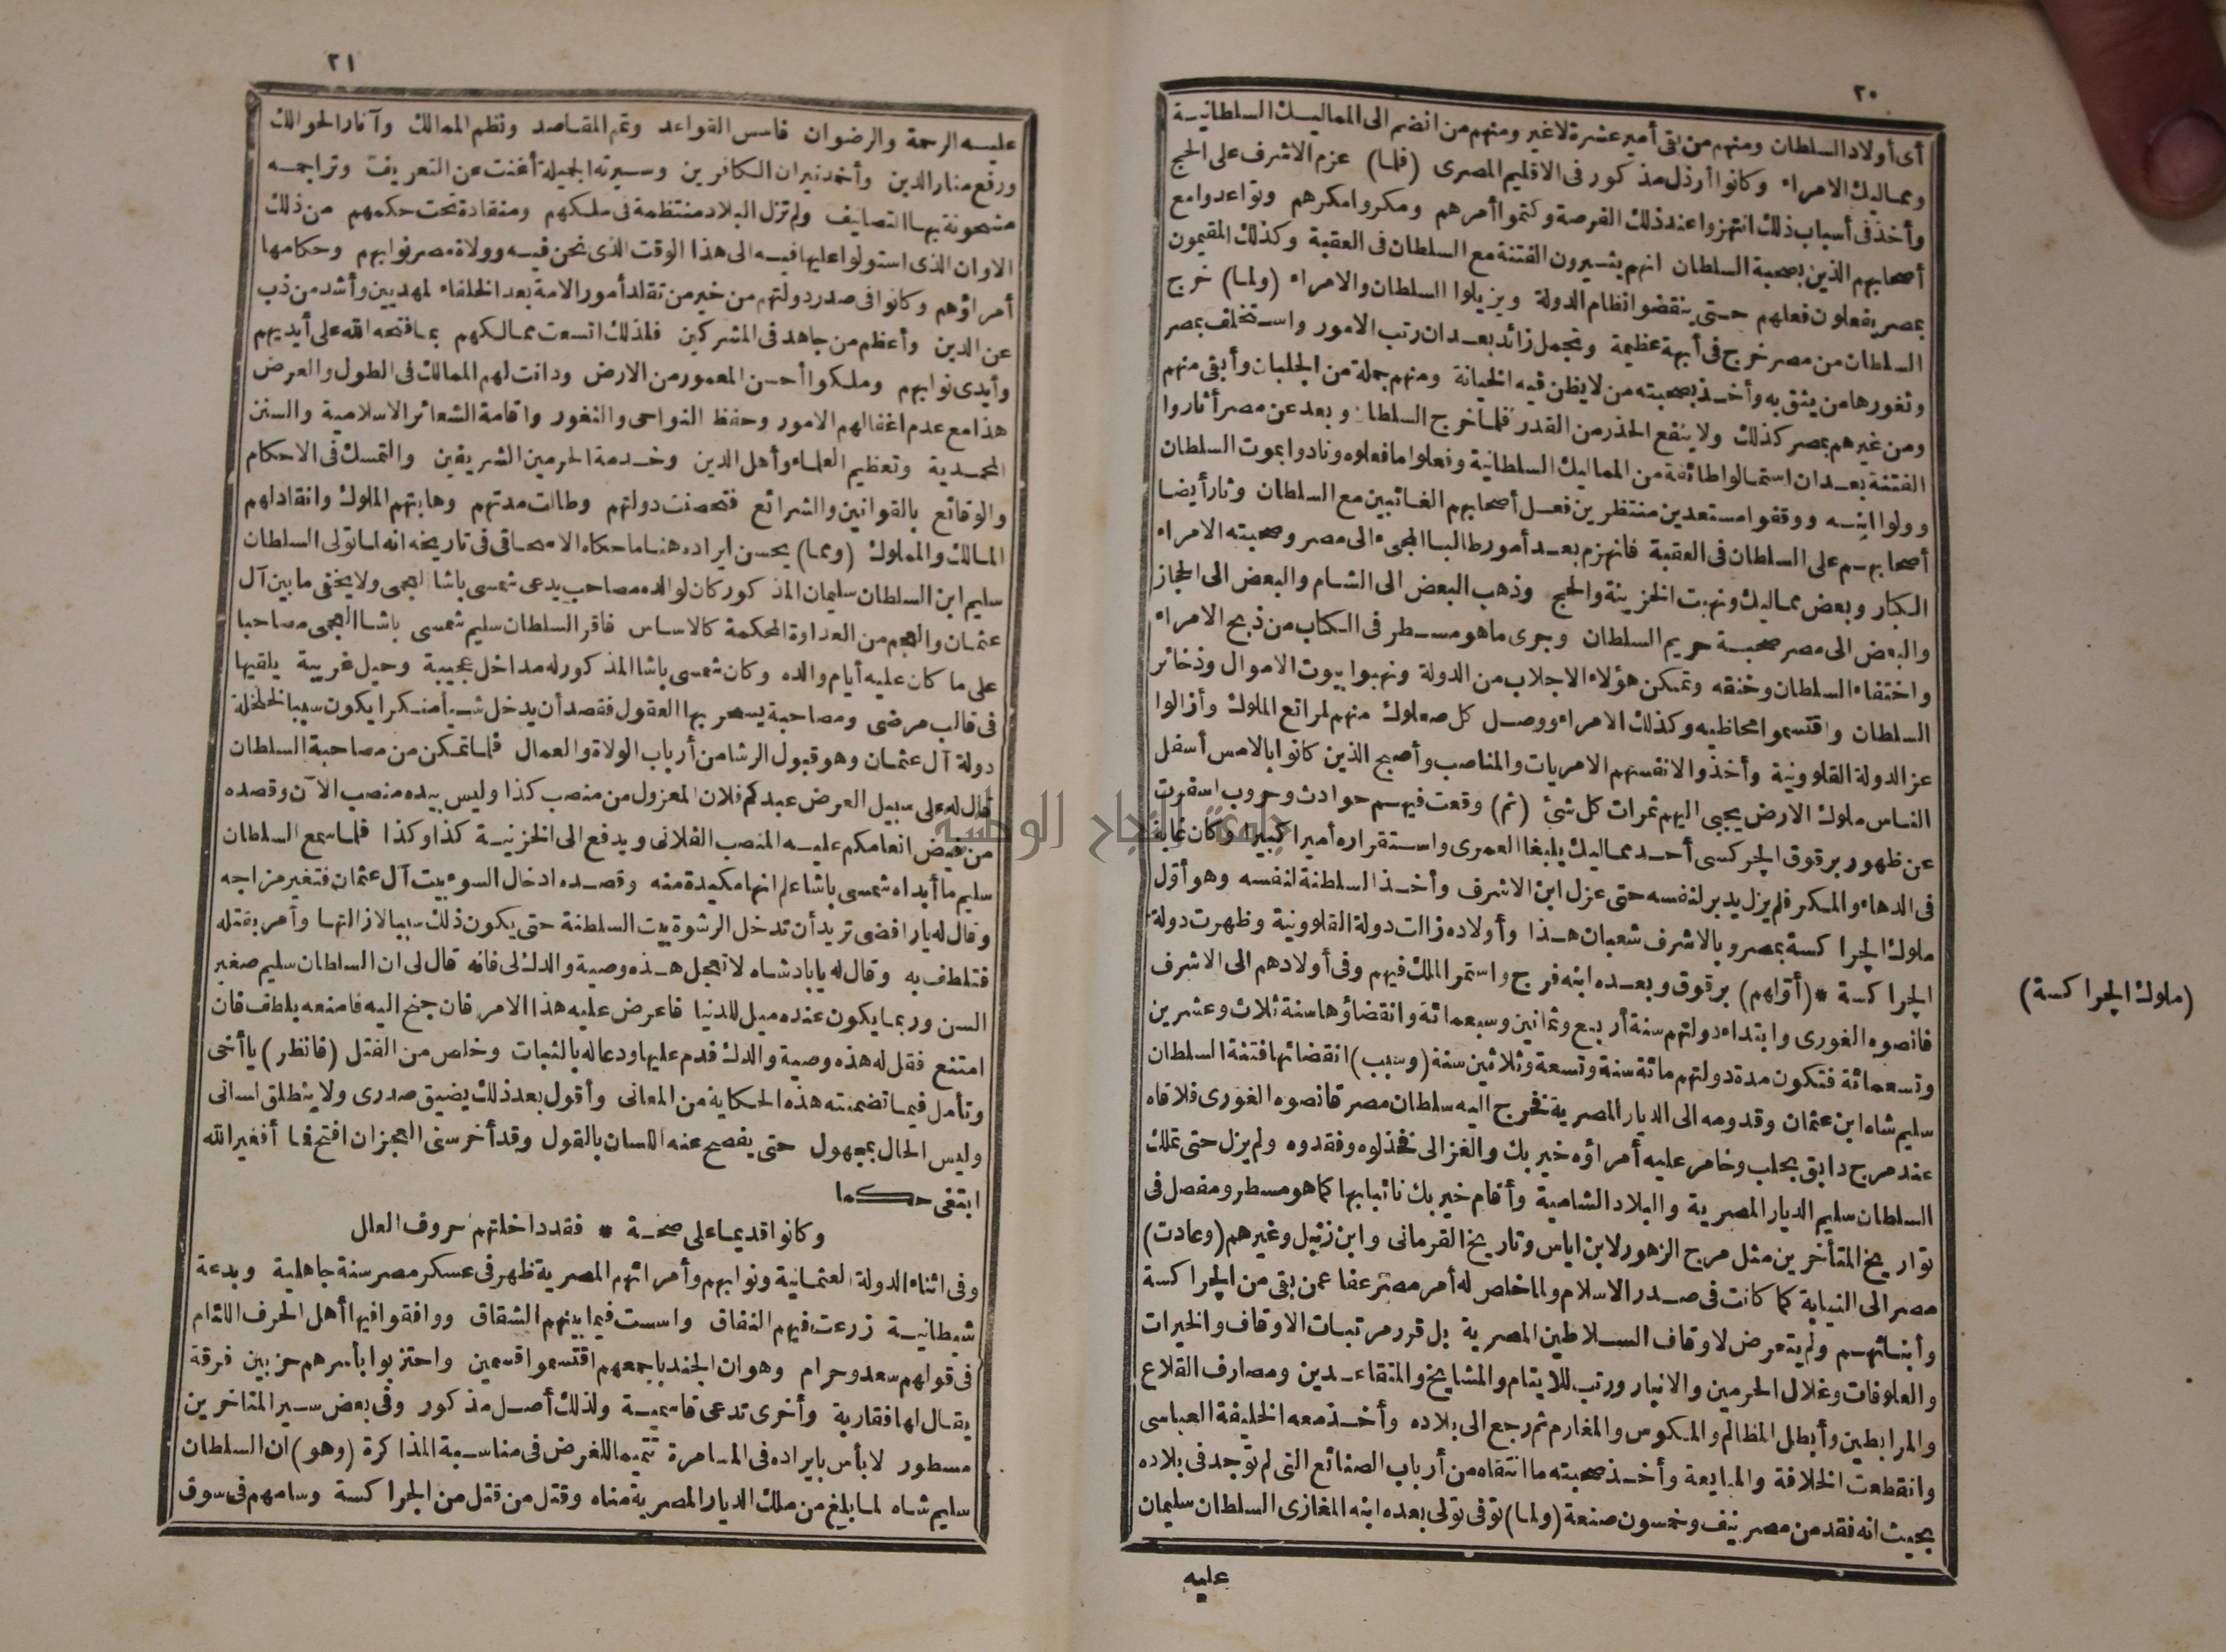 ٢٠
أى أولاد السلطان ومنهم من بقى أمير عشرة لا غير ومنهم من انضم الى المماليك السلطانية
ومماليك الامراء وكانوا أرذل مذكور فى الاقليم المصرى (فلما) عزم الاشرف على الحج
وأخذ فى أسباب ذلك انتهزوا عند ذلك الفرصة وكتموا أمرهم ومكروا مكرهم وتواعدوا مع
أصحابهم الذين بصحبة السلطان انهم يثيرون الفتنة مع السلطان فى العقبة وكذلك المقيمون
بمصر يفعلون فعلهم حتى ينقضوا نظام الدولة ويزيلوا السلطان والامراء (ولما) خرج
السلطان من مصر خرج فى أبهة عظيمة وتجمل زائد بعد ان رتب الامور واستخلف بمصر
وثغورها من يثق به وأخذ بصحبته من لا يظن فيه الخيانة ومنهم جملة من الجلبان وأبقى منهم
ومن غيرهم بمصر كذلك ولا ينفع الحذر من القدر فلما خرج السلطان وبعد عن مصر أثاروا
الفتنة بعد ان استمالوا طائفة من المماليك السلطانية وفعلوا ما فعلوه ونادوا بموت السلطان
وولوا ابنه ووقفوا مستعدين منتظرين فعل أصحابهم الغائبين مع السلطان وثار أيضا
أصحابهم على السلطان فى العقبة فانهزم بعد أمور طالبا المجىء الى مصر وصحبته الامراء
الكبار وبعض مماليك ونهبت الخزينة والحج وذهب البعض الى الشام والبعض الى الحجاز
والبعض الى مصر صحبة حريم السلطان وجرى ما هو مسطر فى الكتاب من ذبح الامراء
واختفاء السلطان وخنقه وتمكن هؤلاء الاجلاب من الدولة ونهبوا بيوت الاموال وذخائر
السلطان واقتسموا محاظيه وكذلك الامراء ووصل كل صعلوك منهم لمراتع الملوك وأزالوا
عز الدولة القلاوونية وأخذوا لانفسهم الامريات والمناصب وأصبح الذين كانوا بالامس أسفل
الناس ملوك الارض يجبى اليهم ثمرات كل شئ (ثم) وقعت فيهم حوادث وحروب اسفرت
عن ظهور برقوق الجركسى أحد مماليك يلبغا العمرى واستقراره أميرا كبيرا وكان غاية
فى الدهاء والمكر فلم يزل يدبر لنفسه حتى عزل ابن الاشرف وأخذ السلطنة لنفسه وهو أول
ملوك الجراكسة بمصر وبالاشرف شعبان هذا وأولاده زالت دولة القلاوونية وظهرت دولة
الجراكسة * (أولهم) برقوق وبعده ابنه فرج واستمر الملك فيهم وفى أولادهم الى الاشرف
قانصوه الغورى وابتداء دولتهم سنة أربع وثمانين وسبعمائة وانقضاؤها سنة ثلاث وعشرين
وتسعمائة فتكون مدة دولتهم مائة سنة وتسعة وثلاثين سنة (وسبب) انقضائها فتنة السلطان
سليم شاه ابن عثمان وقدومه الى الديار المصرية فخرج اليه سلطان مصر قانصوه الغورى فلاقاه
عند مرج دابق بحلب وخامر عليه أمراؤه خير بك والغزالى فخذلوه وفقدوه ولم يزل حتى تملك
السلطان سليم الديار المصرية والبلاد الشامية وأقام خير بك نائبا بها كما هو مسطر ومفصل فى
تواريخ المتأخرين مثل مرج الزهور لابن اياس وتاريخ القرمانى وابن زنبل وغيرهم (وعادت)
مصر الى النيابة كما كانت فى صدر الاسلام ولما خلص له أمر مصر عفا عمن بقى من الجراكسة
وأبنائهم ولم يتعرض لاوقاف السلاطين المصرية بل قرر مرتبات الاوقاف والخيرات
والعلوفات وغلال الحرمين والانبار ورتب للايتام والمشايخ والمتقاعدين ومصارف القلاع
والمرابطين وأبطل المظالم والمكوس والمغارم ثم رجع الى بلاده وأخذ معه الخليفة العباسى
وانقطعت الخلافة والمبايعة وأخذ صحبته ما انتقاه من أرباب الصنائع التى لم توجد فى بلاده
بحيث انه فقد من مصر نيف وخمسون صنعة (ولما) توفى تولى بعده ابنه المغازى السلطان سليمان
عليه
(ملوك الجراكسة)
٢١
عليه الرحمة والرضوان فاسس القواعد وتمم المقاصد ونظم الممالك وآثار الحوالك
ورفع منار الدين وأخمد نيران الكافرين وسيرته الجميلة أغنت عن التعريف وتراجمه
مشحونة بها التصانيف ولم تزل البلاد منتظمة فى ملكهم ومنقادة تحت حكمهم من ذلك
الاوان الذى استولوا عليها فيه الى هذا الوقت الذى نحن فيه وولاة مصر نوابهم وحكامها
أمراؤهم وكانوا فى صدر دولتهم من خير من تقلد أمور الامة بعد الخلفاء المهديين وأشد من ذب
عن الدين وأعظم من جاهد فى المشركين فلذلك اتسعت ممالكهم بما فتحه الله على أيديهم
وأيدى نوابهم وملكوا أحسن المعمور من الارض ودانت لهم الممالك فى الطول والعرض
هذا مع عدم اغفالهم الامور وحفظ النواحى والثغور واقامة الشعائر الاسلامية والسنن
المحمدية وتعظيم العلماء وأهل الدين وخدمة الحرمين الشريفين والتمسك فى الاحكام
والوقائع بالقوانين والشرائع فتحصنت دولتهم وطالت مدتهم وهابتهم الملوك وانقاد لهم
المالك والمملوك (ومما) يحسن ايراده هنا ما حكاه الاسحاقى فى تاريخه انه لما تولى السلطان
سليم ابن السلطان سليمان المذكور كان لوالده مصاحب يدعى شمسى باشا العجمى ولا يخفى ما بين آل
عثمان والعجم من العداوة المحكمة كالاساس فاقر السلطان سليم شمسى باشا العجمى مصاحبا
على ما كان عليه أيام والده وكان شمسى باشا المذكور له مداخل عجيبة وحيل غريبة يلقيها
فى قالب مرضى ومصاحبة يسحر بها العقول فقصد أن يدخل شيأ منكرا يكون سببا لخلخلة
دولة آل عثمان وهو قبول الرشا من أرباب الولاة والعمال فلما تمكن من مصاحبة السلطان
قال له على سبيل العرض عبدكم فلان المعزول من منصب كذا وليس بيده منصب الآن وقصده
من فيض انعامكم عليه المنصب الفلانى ويدفع الى الخزينة كذا وكذا فلما سمع السلطان
سليم ما أبداه شمسى باشا علم انها مكيدة منه وقصده ادخال السوء بيت آل عثمان فتغير مزاجه
وقال له يا رافضى تريد أن تدخل الرشوة بيت السلطنة حتى يكون ذلك سببا لازالتها وأمر بقتله
فتلطف به وقال له يا بادشاه لا تعجل هذه وصية والدك لى فانه قال لى ان السلطان سليم صغير
السن وربما يكون عنده ميل للدنيا فاعرض عليه هذا الامر فان جنح اليه فامنعه بلطف فان
امتنع فقل له هذه وصية والدك فدم عليها ودعا له بالثبات وخلص من القتل (فانظر) يا أخى
وتأمل فيما تضمنته هذه الحكاية من المعانى وأقول بعد ذلك يضيق صدرى ولا ينطلق لسانى
وليس الحال بمجهول حتى يفصح عنه اللسان بالقول وقد أخرسنى العجز ان افتح فما أفغير الله
ابتغى حكما
وكانوا قديما على صحة * فقد داخلتهم حروف العلل
وفى اثناء الدولة العثمانية ونوابهم وأمرائهم المصرية ظهر فى عسكر مصر سنة جاهلية وبدعة
شيطانية زرعت فيهم النفاق واسست فيما بينهم الشقاق ووافقوا فيها أهل الحرف اللئام
فى قولهم سعد وحرام وهو ان الجند باجمعهم اقتسموا قسمين واحتزبوا بأسرهم حزبين فرقة
يقال لها فقارية وأخرى تدعى قاسمية ولذلك أصل مذكور وفى بعض سير المتاخرين
مسطور لا بأس بايراده فى المسامرة تتميما للغرض فى مناسبة المذاكرة (وهو) ان السلطان
سليم شاه لما بلغ من ملك الديار المصرية مناه وقتل من قتل من الجراكسة وسامهم فى سوق
جامعة النجاح الوطنية